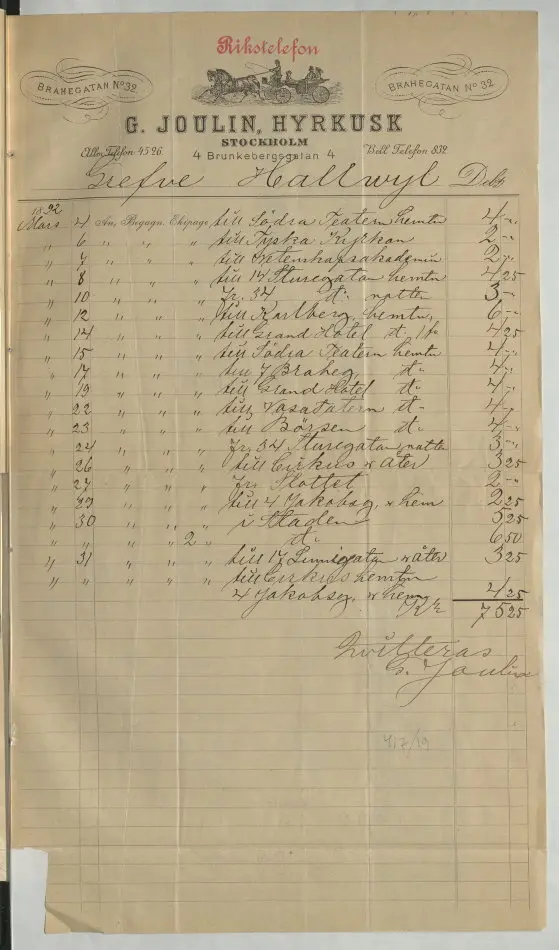 Rikstelefon
BRAHEGATAN No 32
BRAHEGATAN No 32
G. JOULIN, HYRKUSK
STOCKHOLM
Allm. Telefon 4526. 4 Brunkebergsgatan 4 Bell Telefon 832
Grefve Hallwyl Debt
1892
Mars 4 An, Begagn. Ekipage till Södra Teatern hemtn 4 -"-
" 6 " " " till Tyska Kyrkan 2 -"-
" 7 " " " till Vetenskapsakademin 2 -"-
" 8 " " " till 14 Sturegatan hemtn 4 25
" 10 " " " fr. 34 do natten 3 -"-
" 12 " " " till Karlberg hemtn, 6 -"-
" 14 " " " till Grand Hotel do 4 25
" 15 " " " till Södra Teatern hemtn 4 -"-
" 17 " " " till 7 Braheg do 4 -"-
" 19 " " " till Grand Hotel do 4 -"-
" 22 " " " till Vasa Tatern do 4 -"-
" 23 " " " till Börsen do 4 -"-
" 24 " " " fr. 34 Sturegatan, natten 3 -"-
" 26 " " " till Cirkus & åter 3 25
" 27 " " " fr. Slottet 2 -"-
" 29 " " " till 4 Jakobsg, & hem 2 25
" 30 " " " i Staden 5 25
" " " 2 " do 6 50
" 31 " " " till 17 Linnégatan & åter 3 25
" " " " " till Cirkus hemtn
4 Jakobsg, & hem 4 25
75 25
Qvitteras
G. Joulin